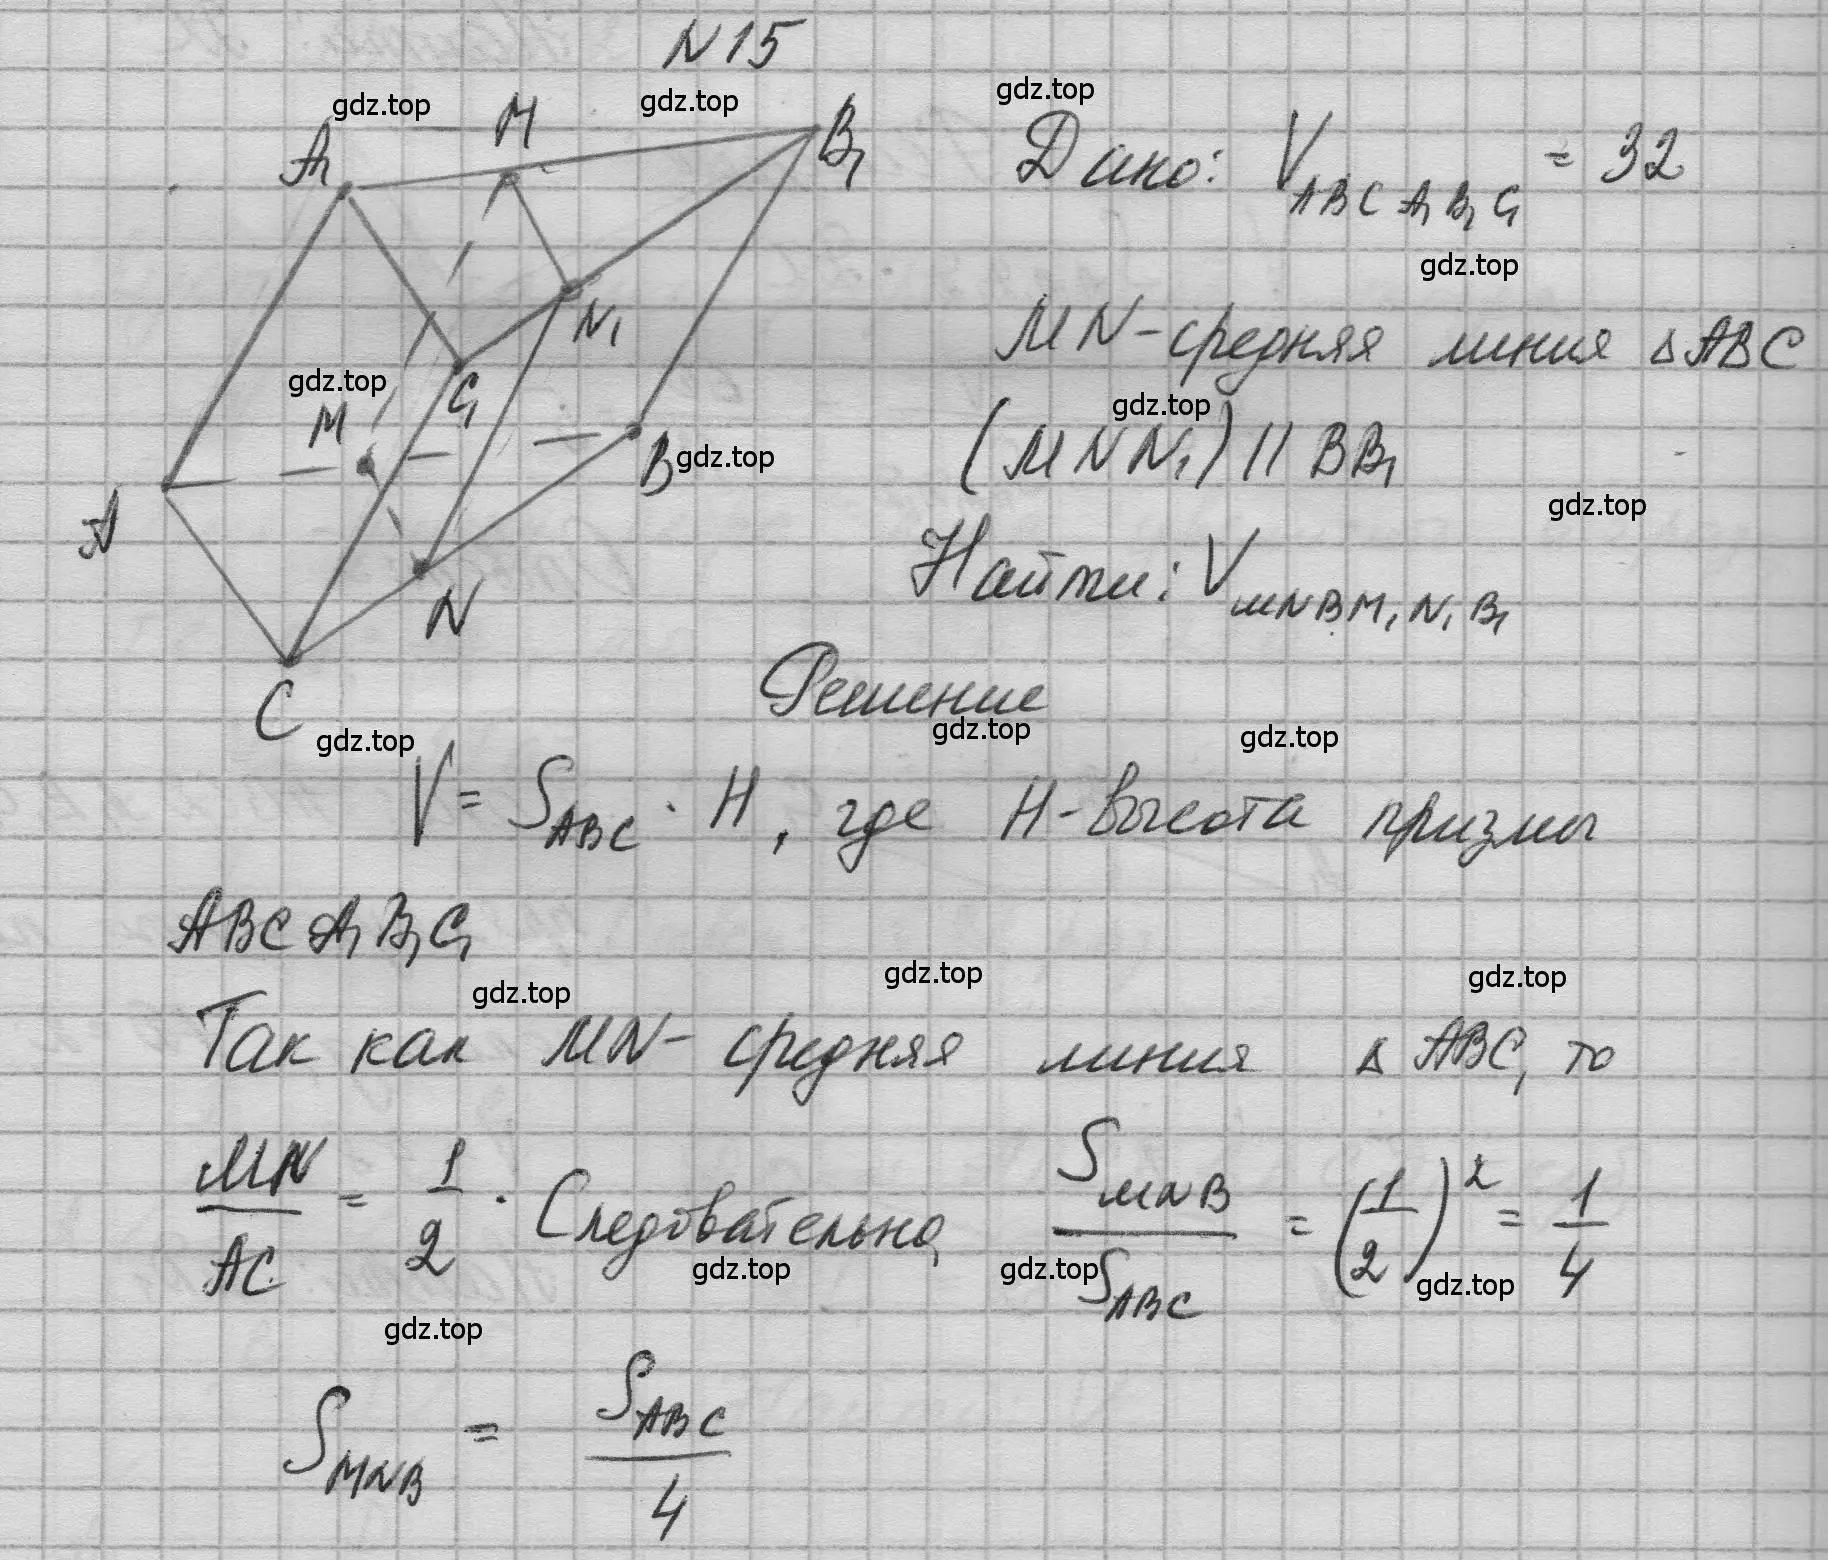 N15
gdz.top
gdz.top
gdz.top
A₁
M
B₁
Дано: V_ABCA₁B₁C₁ = 32
gdz.top
N₁
MN-средняя линия △ABC
gdz.top
M
C₁
gdz.top
(MNN₁) || BB₁
B
gdz.top
gdz.top
A
Найти: V_MNBM₁N₁B₁
N
Решение
C
gdz.top
gdz.top
gdz.top
V = S_ABC · H, где H-высота призмы
ABCA₁B₁C₁
gdz.top
gdz.top
gdz.top
Так как MN- средняя линия △ABC, то
MN/AC = 1/2. Следовательно, S_MNB/S_ABC = (1/2)² = 1/4
gdz.top
gdz.top
gdz.top
gdz.top
S_MNB = S_ABC/4